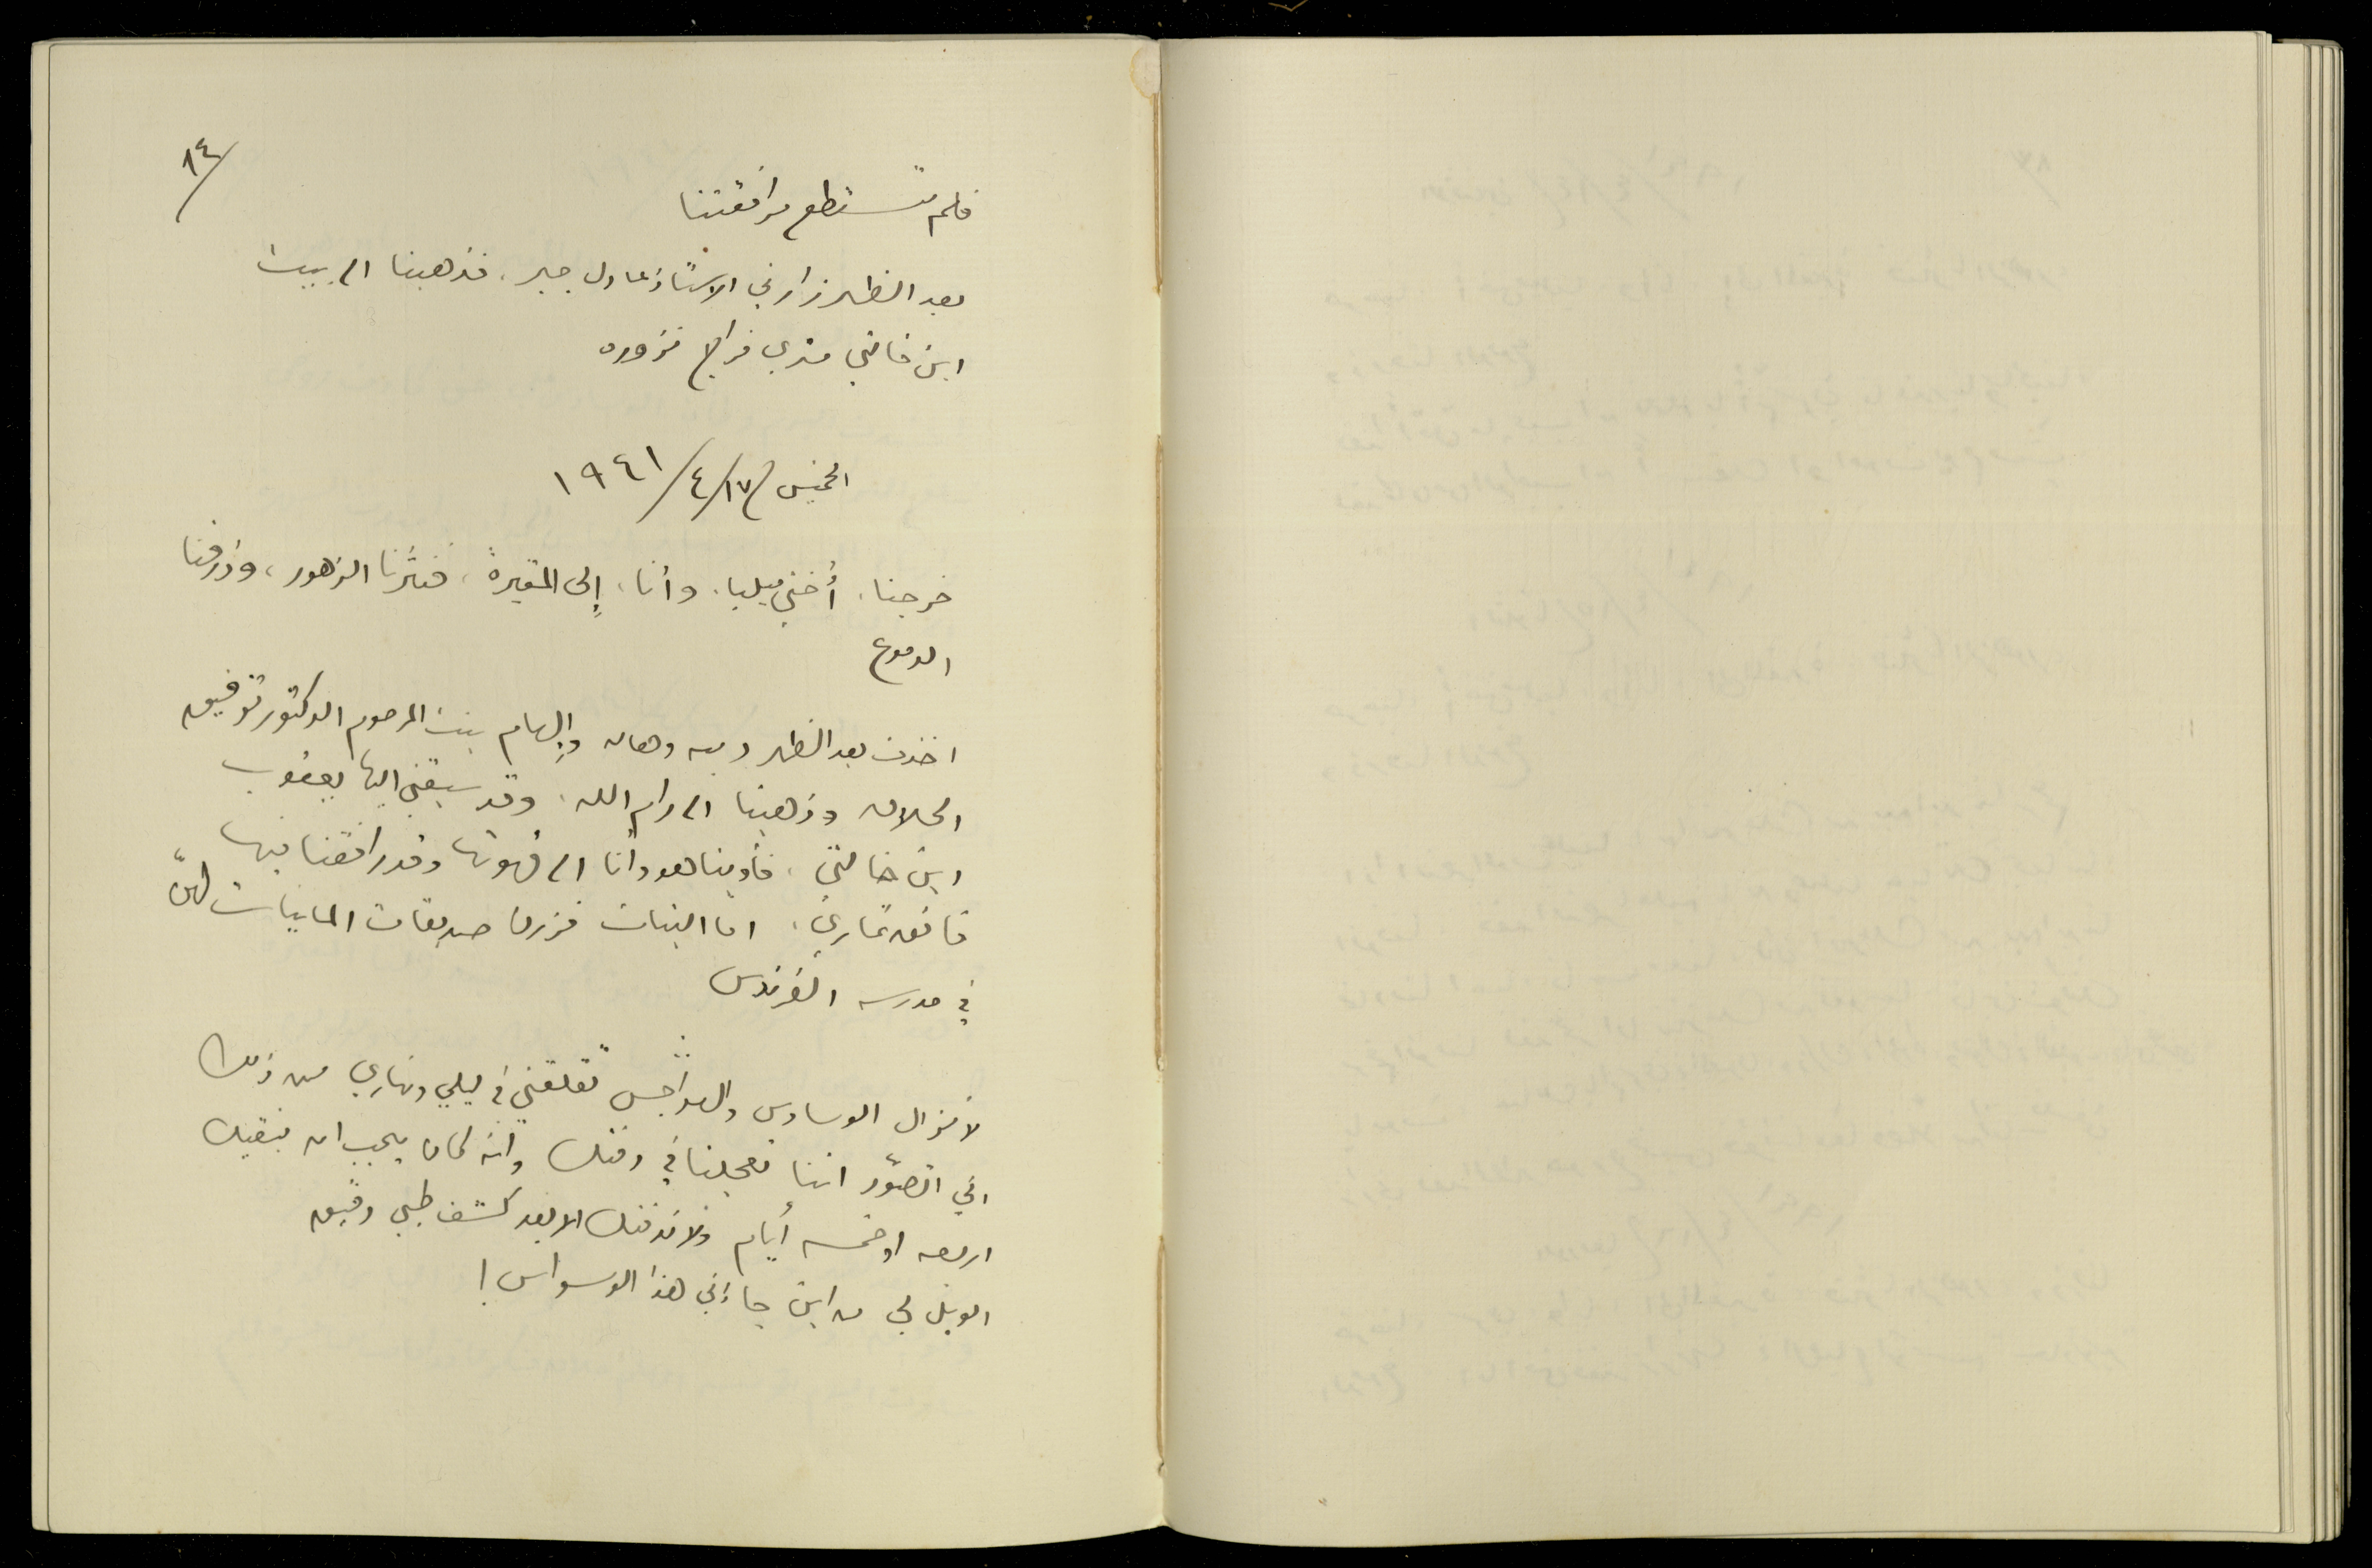 ٨٤/
فلم تستطع مرافقتنا
بعد الظهر زارني الاستاذ عادل جبر، فذهبنا الى بيت
ابن خالتي متري فراج نزوره
الخميس ١٧/٤/١٩٤١
خرجنا، أختي ميليا، وأنا، إلى المقبرة، فنثرنا الزهور، وذرفنا
الدموع
اخذت بعد الظهر دميه وهاله وإلهام بنت المرحوم الدكتور توفيق
الحلاق وذهبنا الى رام الله، وقد سبقني اليها يعقوب
ابن خالتي، فأوينا هو وأنا الى قهوتها وقد رافقنا فيها
تماري، اما البنات فزرن صديقات لهنّ
في مدرسه الفرندس
لا تزال الوساوس والهواجس تقلقني في ليلي ونهاري من ذلك
اني اتصوّر اننا تعجلنا في دفنك وأنه كان يجب ان نبقيك
اربعه او خمسه أيام ولا ندفنك الا بعد كشف طبي دقيق
الويل لي من اين جاءني هذا الوسواس!